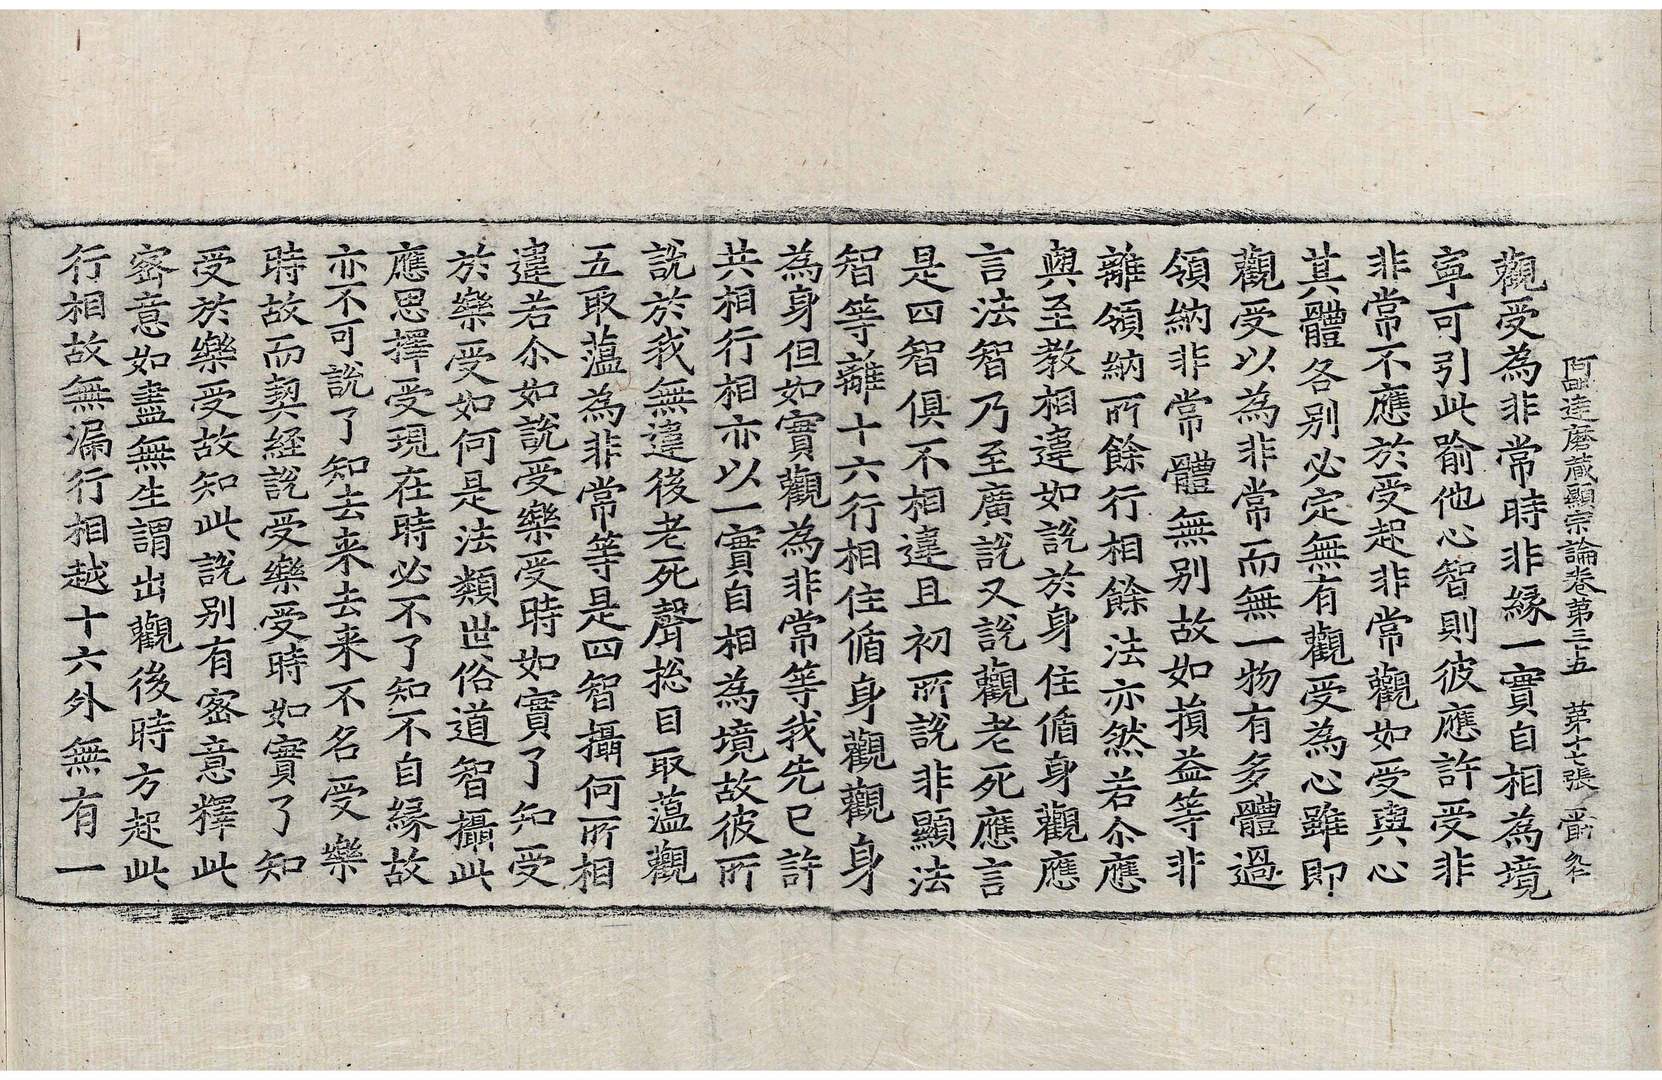 阿毗達磨藏顯宗論卷第三十五 第十七張
觀受為非常時非緣一實自相為境
寧可引此喻他心智則彼應許受非
非常不應於受起非常觀如受與心
其體各別必定無有觀受為心雖即
觀受以為非常而無一物有多體過
領納非常體無別故如損益等非
離領納所餘行相餘法亦然若尒應
與至教相違如說於身住循身觀應
言法智乃至廣說又說觀老死應言
是四智俱不相違且初所說非顯法
智等離十六行相住循身觀觀身
為身但如實觀為非常等我先已許
共相行相亦以一實自相為境故彼所
說於我無違後老死聲捴目取薀觀
五取薀為非常等是四智攝何所相
違若尒如說受樂受時如實了知受
於樂受如何是法類世俗道智攝此
應思擇受現在時必不了知不自緣故
亦不可說了知去来去来不名受樂
時故而契經說受樂受時如實了知
受於樂受故知此說別有密意釋此
密意如盡無生謂出觀後時方起此
行相故無漏行相越十六外無有一